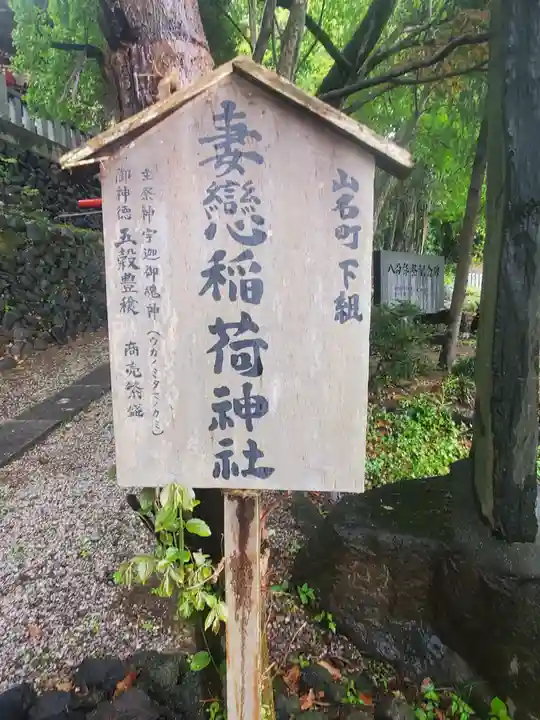 山名町下組
妻戀稲荷神社
主祭神 宇迦御魂神(ウカノミタマノカミ)
御神徳 五穀豊穣 商売繁盛